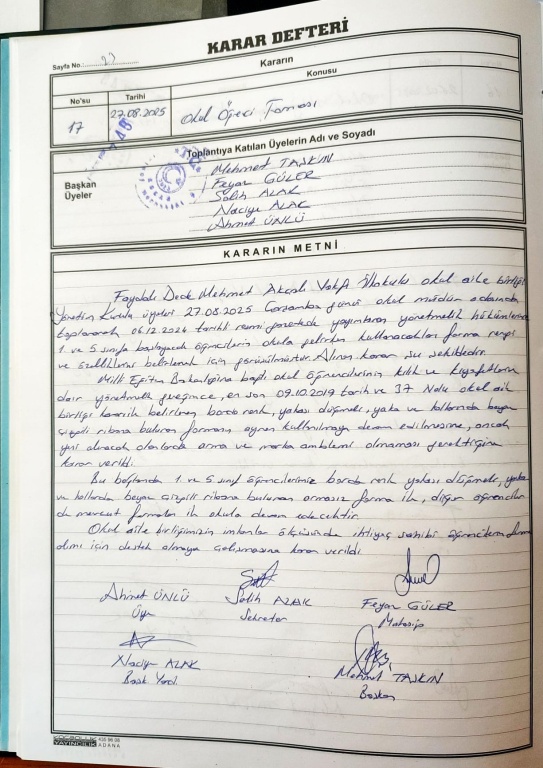 KARAR DEFTERİ
Sayfa No.: 23
Kararın
No'su Tarihi Konusu
17 27.08.2025 Okul Öğrenci Forması
Toplantıya Katılan Üyelerin Adı ve Soyadı
Başkan Mehmet TAŞKIN
Üyeler Feyaz GÜLER
Salih ALAK
Naciye ALAK
Ahmet ÜNLÜ
KARARIN METNİ
Faydalı Dede Mehmet Akçalı Vakfı İlkokulu okul aile birliği
Yönetim Kurulu üyeleri 27.08.2025 Çarşamba günü okul müdür odasında
toplanarak 06.12.2024 tarihli resmi gazetede yayınlanan yönetmelik hükümlerince
1 ve 5 sınıfa başlayacak öğrencilerin okula gelirken kullanacakları forma rengi
ve özelliklerini belirlemek için görüşülmüştür. Alınan karar şu şekildedir.
Milli Eğitim Bakanlığına bağlı okul öğrencilerinin kılık ve kıyafetlerine
dair yönetmelik gereğince, en son 09.10.2019 tarih ve 37 Nolu okul aile
birliği kararıyla belirlenen bordo renk, yakası düğmeli, yaka ve kollarında beyaz
çizgili ribana bulunan formanın aynen kullanılmaya devam edilmesine, ancak
yeni alınacak olanlarda arma ve marka amblemi olmaması gerektiğine
karar verildi.
Bu bağlamda 1 ve 5 sınıf öğrencilerimiz bordo renk yakası düğmeli, yaka
ve kollarda beyaz çizgili ribana bulunan armasız forma ile, diğer öğrenciler
de mevcut formaları ile okula devam edecektir.
Okul aile birliğimizin imkanlar ölçüsünde ihtiyaç sahibi öğrencilerin forma
alımı için destek olmaya çalışmasına karar verildi.
Ahmet ÜNLÜ Salih ALAK Feyaz GÜLER
Üye Sekreter Muhasip
Naciye ALAK Mehmet TAŞKIN
Başk Yard. Başkan
YAYINCILIK ADANA